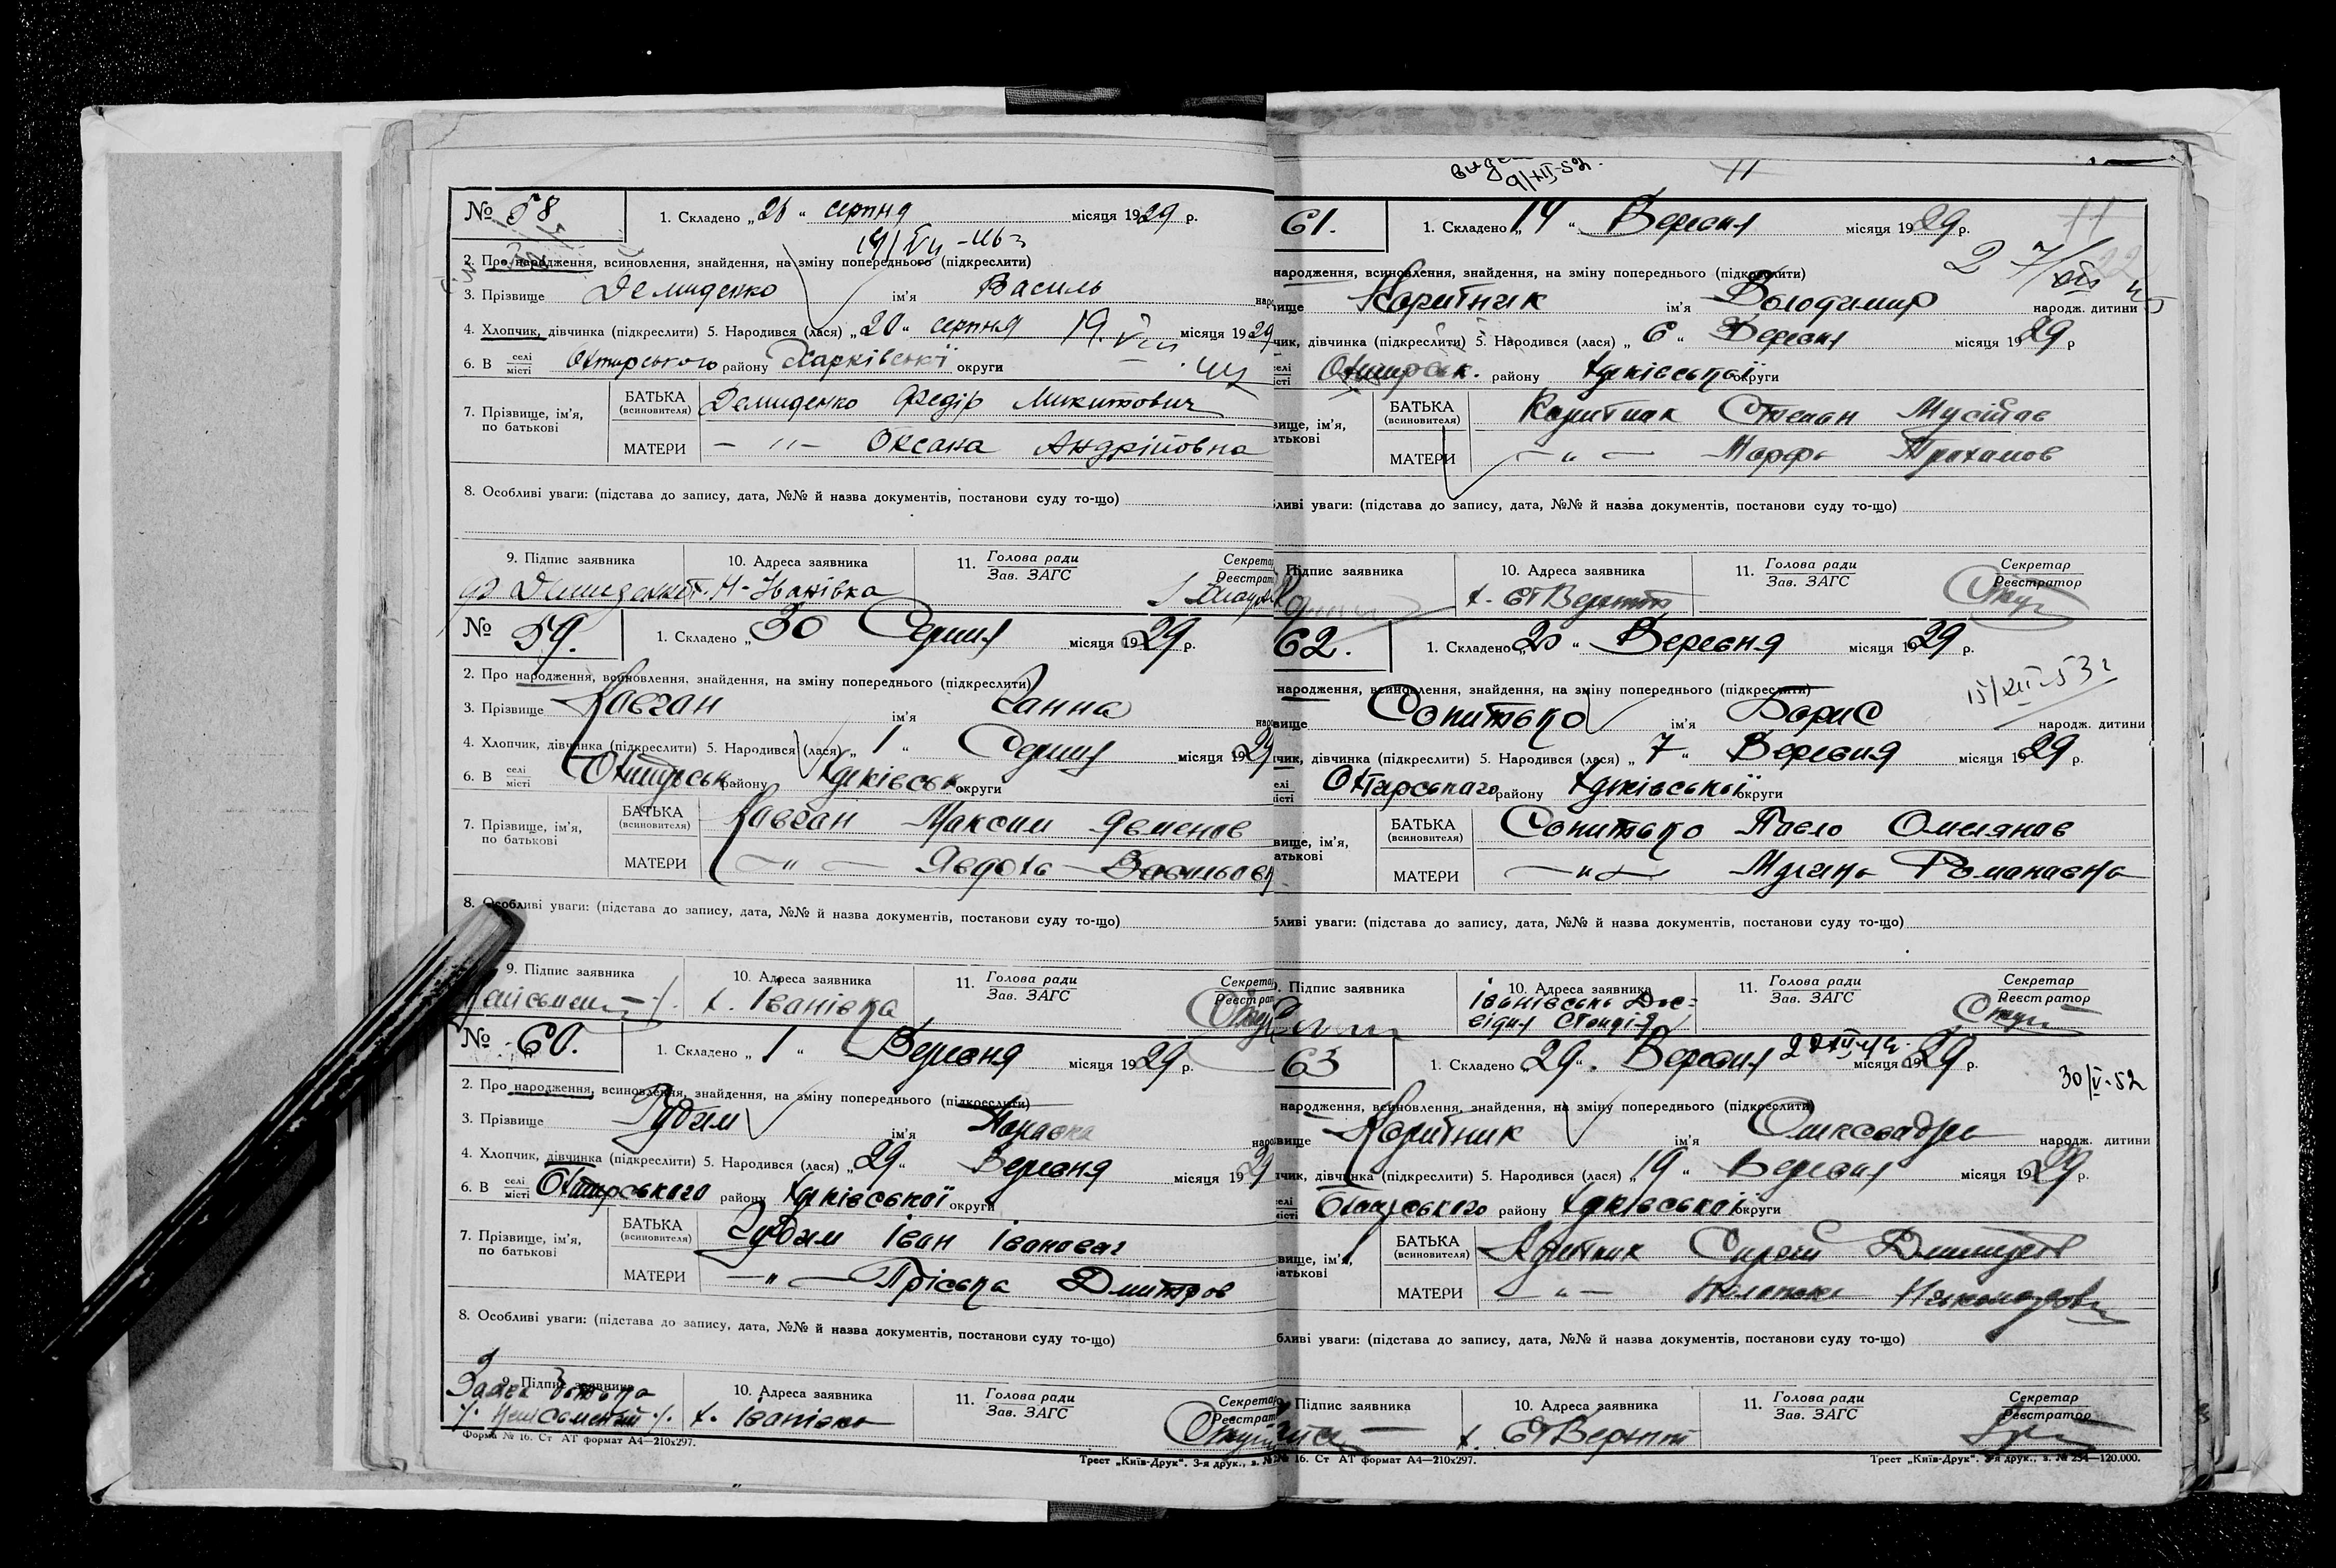 № 58
1. Складено „ 21 “ серпня місяця 1929 р.
2. Про народження, всиновлення, знайдення, на зміну попереднього (підкреслити)
3. Прізвище Демиденко ім'я Василь
4. Хлопчик, дівчинка (підкреслити) 5. Народився (лася) „ 20 “ серпня місяця 1929
6. В селі місті Охтирського району Харківської округи
7. Прізвище, ім'я, по батькові
БАТЬКА (всиновителя) Демиденко Федір Микитович
МАТЕРИ — " — Оксана Андріївна
8. Особливі уваги: (підстава до запису, дата, №№ й назва документів, постанови суду то-що)
9. Підпис заявника
10. Адреса заявника
11. Голова ради Зав. ЗАГС
Демиденко Іванівка
№ 59.
1. Складено „ 30 Серпня місяця 1929 р.
2. Про народження, всиновлення, знайдення, на зміну попереднього (підкреслити)
3. Прізвище Ковган ім'я Ганна
4. Хлопчик, дівчинка (підкреслити) 5. Народився (лася) „ 1 “ Серпня місяця 1929
6. В селі місті Охтирськ району Харківськ. округи
7. Прізвище, ім'я, по батькові
БАТЬКА (всиновителя) Ковган Максим
МАТЕРИ — " — Явдоха
8. Особливі уваги: (підстава до запису, дата, №№ й назва документів, постанови суду то-що)
9. Підпис заявника
10. Адреса заявника
11. Голова ради Зав. ЗАГС
х. Іванівка
№ 60.
1. Складено „ 1 “ Вересня місяця 1929 р.
2. Про народження, всиновлення, знайдення, на зміну попереднього (підкреслити)
3. Прізвище Гудим ім'я Параска
4. Хлопчик, дівчинка (підкреслити) 5. Народився (лася) „ 29 “ Вересня місяця 1929
6. В селі місті Охтирського району Харківської округи
7. Прізвище, ім'я, по батькові
БАТЬКА (всиновителя) Гудим Іван Іванович
МАТЕРИ — " — Пріська Дмитров
8. Особливі уваги: (підстава до запису, дата, №№ й назва документів, постанови суду то-що)
9. Підпис заявника
10. Адреса заявника
11. Голова ради Зав. ЗАГС
х. Іванівка
Форма № 16. Ст АТ формат А4—210х297.
Трест „Київ-Друк“. 3-я друк., з. №
61.
1. Складено „ 14 “ Вересня місяця 1929 р.
народження, всиновлення, знайдення, на зміну попереднього (підкреслити)
Коритник ім'я Володимир народж. дитини
дівчинка (підкреслити) 5. Народився (лася) „ 6 “ Вересня місяця 1929 р
Охтирськ. району Харківської округи
БАТЬКА (всиновителя) Коритник Степан
МАТЕРИ — " — Марфа
уваги: (підстава до запису, дата, №№ й назва документів, постанови суду то-що)
Підпис заявника
10. Адреса заявника
11. Голова ради Зав. ЗАГС
Секретар Реєстратор
62.
1. Складено „ 20 “ Вересня місяця 1929 р.
15/XII-53 г
народження, всиновлення, знайдення, на зміну попереднього (підкреслити)
Сопитько ім'я Борис народж. дитини
дівчинка (підкреслити) 5. Народився (лася) „ 7 “ Вересня місяця 1929 р.
Охтирського району Харківської округи
БАТЬКА (всиновителя) Сопитько Павло Омелянов
МАТЕРИ — " — Романовна
уваги: (підстава до запису, дата, №№ й назва документів, постанови суду то-що)
Підпис заявника
10. Адреса заявника
11. Голова ради Зав. ЗАГС
Секретар Реєстратор
63
1. Складено „ 29 “ Вересня місяця 1929 р.
30/V-52
народження, всиновлення, знайдення, на зміну попереднього (підкреслити)
Коритник ім'я Олександра народж. дитини
дівчинка (підкреслити) 5. Народився (лася) „ 19 “ Вересня місяця 1929 р.
Охтирського району Харківської округи
БАТЬКА (всиновителя) Коритник Сергій
МАТЕРИ — " —
уваги: (підстава до запису, дата, №№ й назва документів, постанови суду то-що)
Підпис заявника
10. Адреса заявника
11. Голова ради Зав. ЗАГС
Секретар Реєстратор
16. Ст АТ формат А4—210х297.
Трест „Київ-Друк“. 3-я друк., з. № 254—120.000.